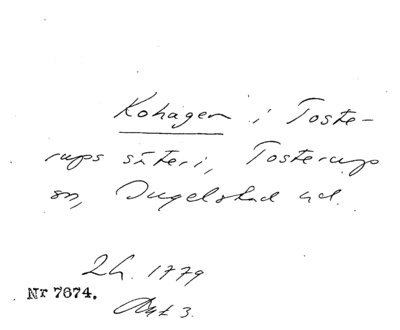 Kohagen i Toste-
rups säteri, Tosterups
sn, Ingelstad hd.
Lh. 1779
Nr 7674.
Akt 3.